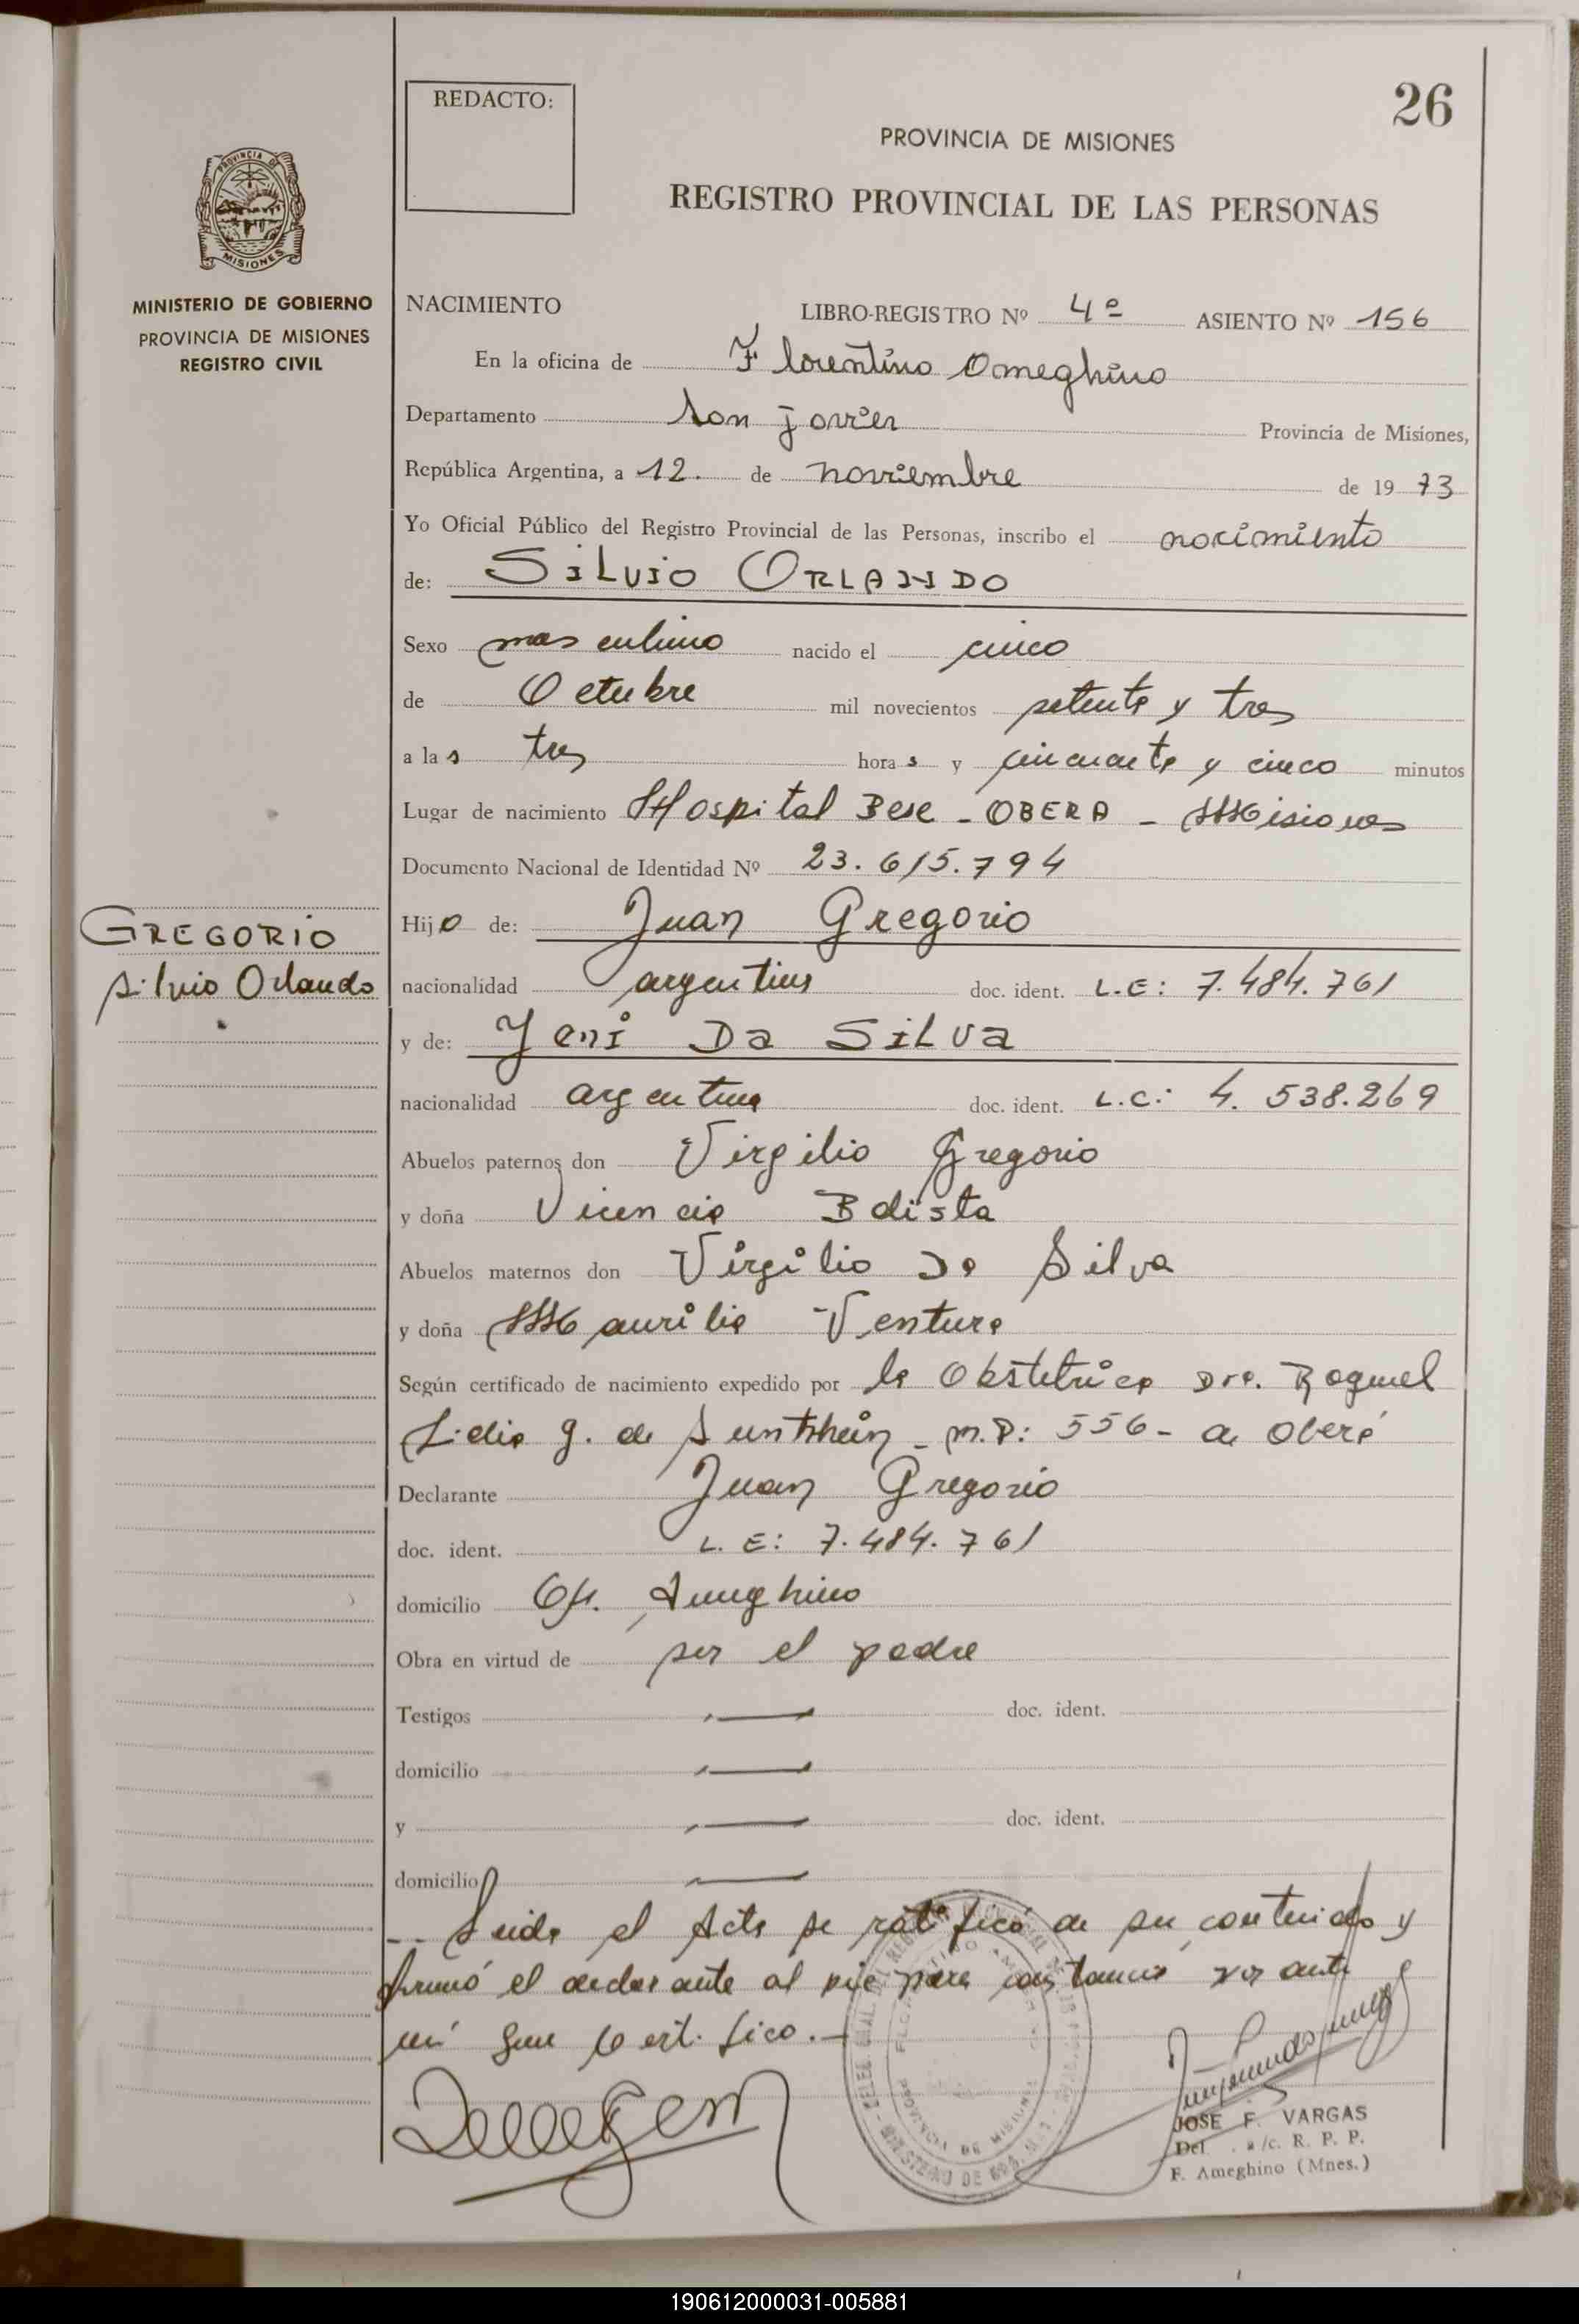 26
REDACTO:
PROVINCIA DE MISIONES
REGISTRO PROVINCIAL DE LAS PERSONAS
PROVINCIA DE
MISIONES
MINISTERIO DE GOBIERNO
PROVINCIA DE MISIONES
REGISTRO CIVIL
NACIMIENTO LIBRO-REGISTRO Nº 4º ASIENTO Nº 156
En la oficina de Florentino Ameghino
Departamento San Javier Provincia de Misiones,
República Argentina, a 12. de noviembre de 1973
Yo Oficial Público del Registro Provincial de las Personas, inscribo el nacimiento
de: SILVIO ORLANDO
Sexo masculino nacido el cinco
de Octubre mil novecientos setenta y tres
a las tres horas y cincuenta y cinco minutos
Lugar de nacimiento Hospital Base - OBERA - Misiones
Documento Nacional de Identidad Nº 23.615.794
GREGORIO
Silvio Orlando
Hijo de: Juan Gregorio
nacionalidad argentino doc. ident. L.E: 7.484.761
y de: Yeni Da Silva
nacionalidad argentina doc. ident. L.C: 4.538.269
Abuelos paternos don Virgilio Gregorio
y doña Vicencia Bdista
Abuelos maternos don Virgilio Da Silva
y doña Maurilia Ventura
Según certificado de nacimiento expedido por la Obstetrica Dra. Raquel
Lidia G. de - M.P: 556 - de Oberá
Declarante Juan Gregorio
doc. ident. L.E: 7.484.761
domicilio Ameghino
Obra en virtud de ser el padre
Testigos — doc. ident.
domicilio —
y — doc. ident.
domicilio —
-- Leida el Acta se ratificó de su contenido y
firmó el declarante al pie para constancia por ante
mí que Certifico.-
JOSE F. VARGAS
Del. a/c. R. P. P.
F. Ameghino (Mnes.)
190612000031-005881